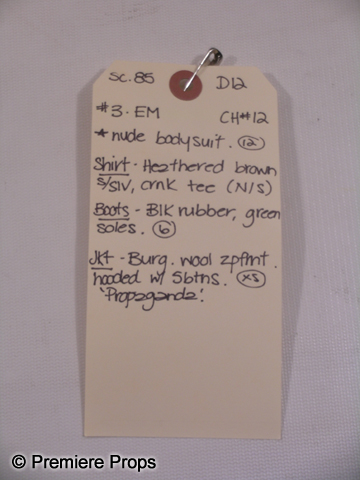 SC. 85 D12
#3. EM CH#12
* nude bodysuit. 12
Shirt - Heathered brown
s/slv, crnk tee (N/S)
Boots - Blk rubber, green
soles. 6
Jkt - Burg. wool zpfrnt.
hooded w/ 5btns. xs
'Propaganda'.
© Premiere Props